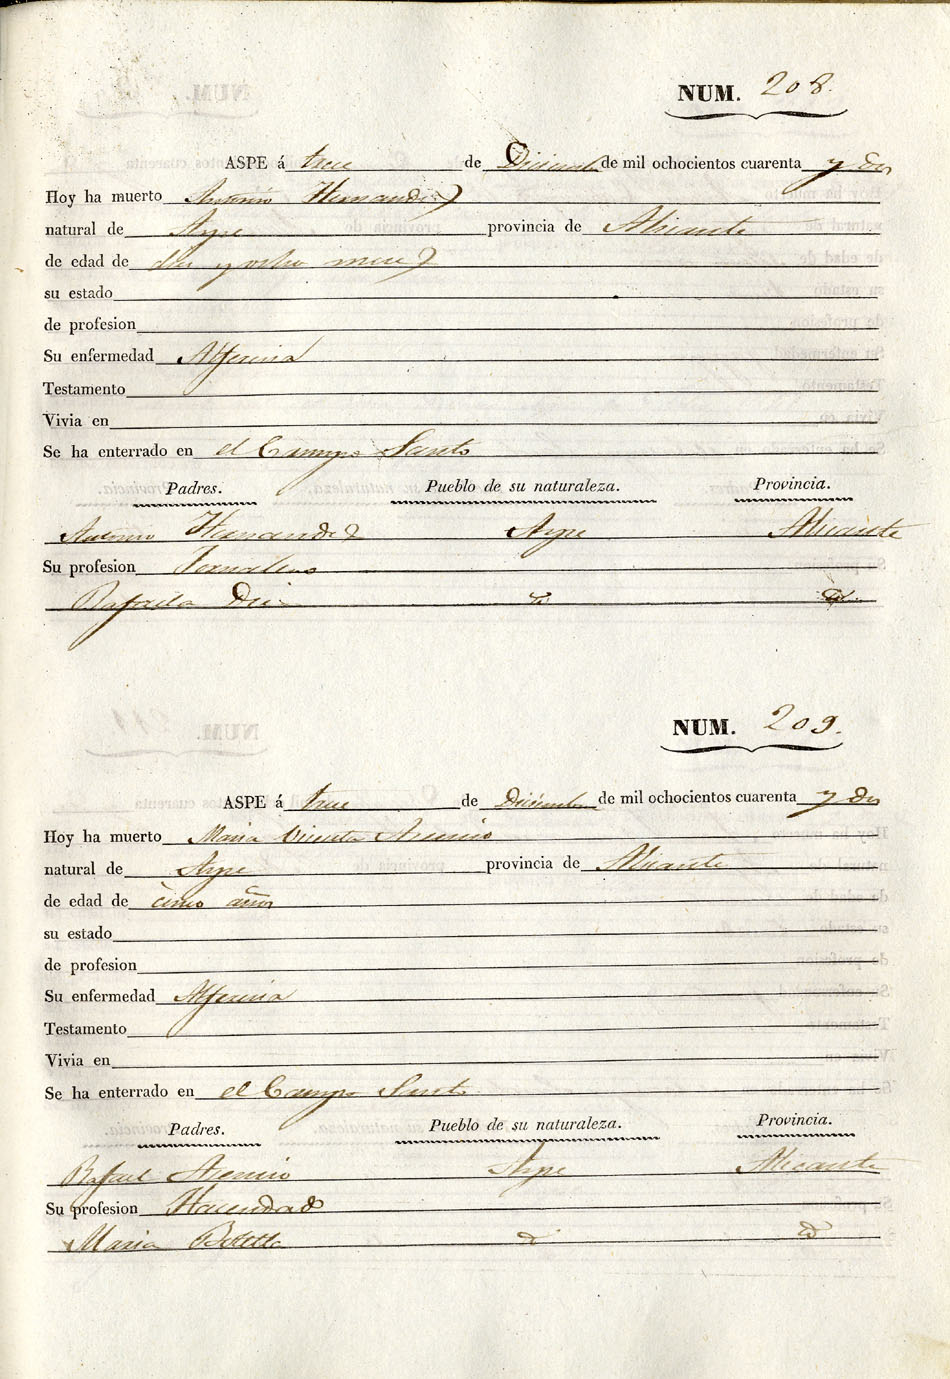 NUM. 208.
ASPE á trece de Diciembre de mil ochocientos cuarenta y dos
Hoy ha muerto Antonio Hernandez
natural de Aspe provincia de Alicante
de edad de diez y ocho meses
su estado
de profesion
Su enfermedad Alferecia
Testamento
Vivia en
Se ha enterrado en el Campo Santo
Padres. Pueblo de su naturaleza. Provincia.
Antonio Hernandez Aspe Alicante
Su profesion Jornalero
Rafaela id id
NUM. 209.
ASPE á trece de Diciembre de mil ochocientos cuarenta y dos
Hoy ha muerto Maria Vicenta Asencio
natural de Aspe provincia de Alicante
de edad de cinco años
su estado
de profesion
Su enfermedad Alferecia
Testamento
Vivia en
Se ha enterrado en el Campo Santo
Padres. Pueblo de su naturaleza. Provincia.
Rafael Asencio Aspe Alicante
Su profesion Hacendado
Maria Botella id id